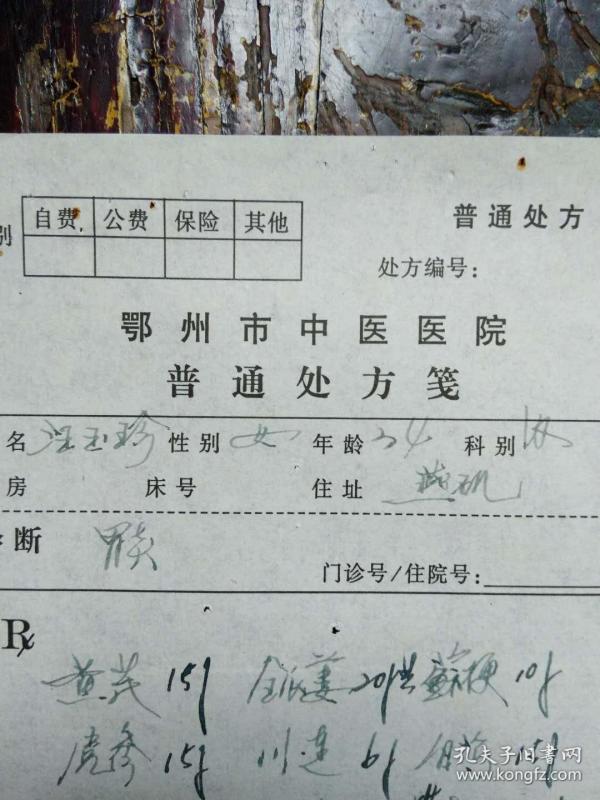 别 自费 公费 保险 其他
普通处方
处方编号:
鄂州市中医医院
普通处方笺
名 汪玉珍 性别 女 年龄 34 科别 内
房 床号 住址 燕矶
断 胃炎
门诊号/住院号:
R
黄芪 15g 全瓜蒌 20g 苏梗 10g
党参 15g 川连 6g 15g
孔夫子旧书网
www.kongfz.com